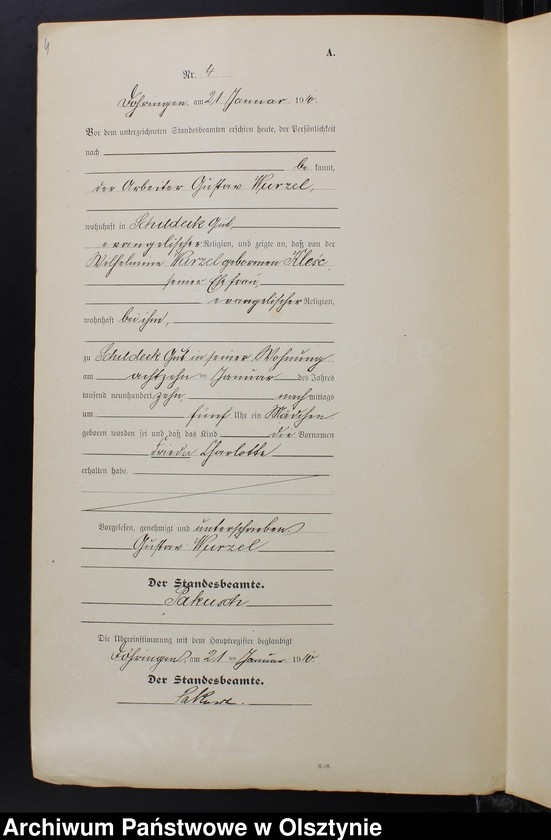 4
A.
Nr. 4
Döhringen am 21 Januar 1910.
Vor dem unterzeichneten Standesbeamten erschien heute, der Persönlichkeit
nach
be kannt,
der Arbeiter Gustav Wurzel,
wohnhaft in Schildeck Gut,
evangelischer Religion, und zeigte an, daß von der
Wilhelmine Wurzel geborenen
seiner Ehefrau,
evangelischer Religion,
wohnhaft bei ihm,
zu Schildeck Gut in seiner Wohnung
am achtzehn ten Januar des Jahres
tausend neunhundert zehn nachmittags
um fünf Uhr ein Mädchen
geboren worden sei und daß das Kind die Vornamen
Frieda Charlotte
erhalten habe.
Vorgelesen, genehmigt und unterschrieben
Gustav Wurzel
Der Standesbeamte.
Sakusch
Die Übereinstimmung mit dem Hauptregister beglaubigt
Döhringen, am 21 ten Januar 1910.
Der Standesbeamte.
Archiwum Państwowe w Olsztynie